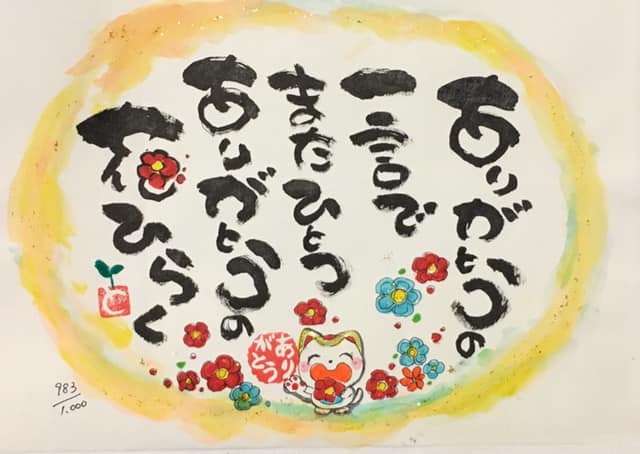 ありがとうの
一言で
またひとつ
ありがとうの
花ひらく
ありがとう
983/1.000